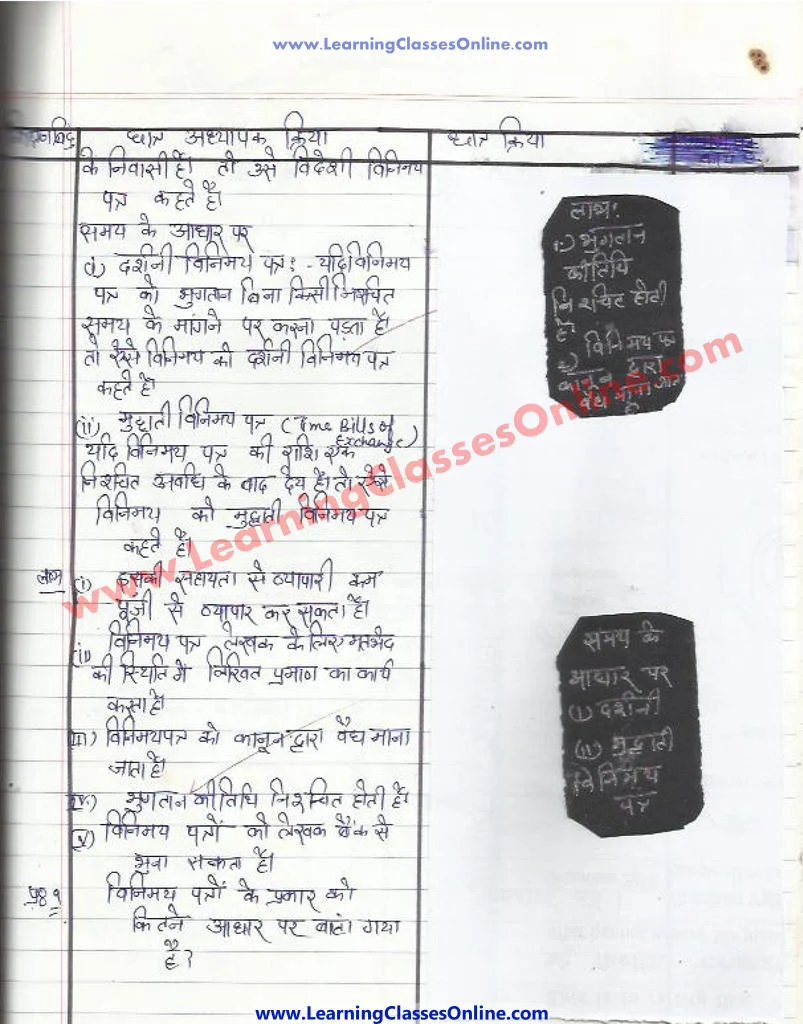 www.LearningClassesOnline.com
छात्र अध्यापक क्रिया
छात्र क्रिया
के निवासी हैं। तो उसे विदेशी विनिमय
पत्र कहते हैं।
समय के आधार पर
(i) दर्शनी विनिमय पत्र :- यदि विनिमय
पत्र को भुगतान बिना किसी निश्चित
समय के मांगने पर करना पड़ता है।
तो ऐसे विनिमय को दर्शनी विनिमय पत्र
कहते है।
(ii) मुद्दाती विनिमय पत्र (Time Bills of
Exchange)
यदि विनिमय पत्र की राशि एक
निश्चित अवधि के बाद देय हो। तो ऐसे
विनिमय को मुद्दाती विनिमय पत्र
कहते है।
लाभ (i) इसकी सहायता से व्यापारी कम
पूंजी से व्यापार कर सकता है।
(ii) विनिमय पत्र लेखक के लिए मतभेद
की स्थिति में लिखित प्रमाण का कार्य
करता है।
III) विनिमयपत्र को कानून द्वारा वैध माना
जाता है।
IV.) भुगतान की तिथि निश्चित होती है।
V) विनिमय पत्रों को लेखक बैंक से
भुना सकता है।
प्रश्न १ विनिमय पत्रों के प्रकार को
कितने आधार पर बाटां गया
है?
लाभ:
1.) भुगतान
की तिथि
निश्चित होती
है।
2.) विनिमय पत्र
कानून द्वारा
वैध माना जाता
है
समय के
आधार पर
(i) दर्शनी
(ii) मुद्दाती
विनिमय
पत्र
www.LearningClassesOnline.com
www.LearningClassesOnline.com